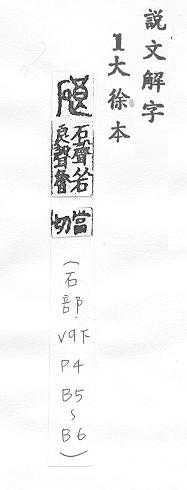 説文解字
1大徐本
硠
石聲从石
良聲魯
當切
(石部 V9下 P4 B5~B6)